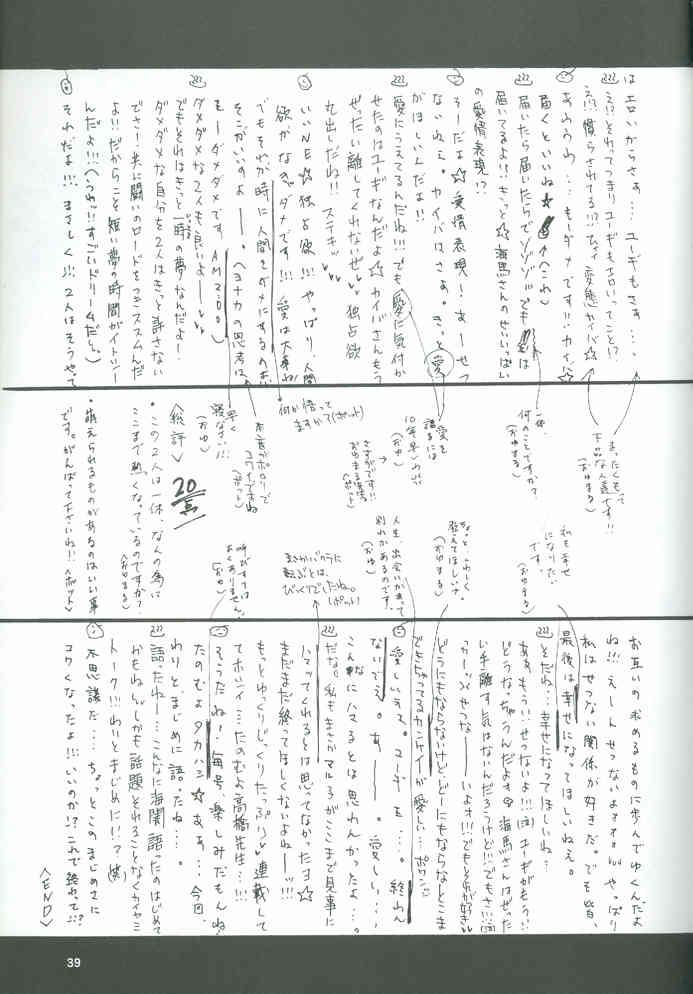 はエロいからさぁ…ユーギもさす…。
え!?それってつまりユーギもエロいってこと!?
え!?慣らされてる!?ひょえ 変態カイバ☆
あわうわ…もーダメです!!カイバ☆
届くといいね★ (へこね)
届いたら届いたらでゾゾゾ でも
届いてるよ!!きっと☆海馬さんのせいいっぱい
の愛情表現!?
そーだよ☆愛情表現!あーせつ
ないねぇ。カイバはさぁ。きっと愛
がほしいんだよ!!
愛にうえてるんだね!!!でも愛に気付か
せたのはユーギなんだよ☆カイバさんもう
ぜったい離してくれないぜ 独占欲
丸出しだね!!ステキッ
いいNE☆独占欲!!!やっぱり人間
欲がなきゃダメです!!!愛は大事ね
でもそれが時に人間をダメにするのよ
そこがいいのよー。ヘヨナカの思考は
もーダメダメです AM2:00)
ダメダメな2人も良いよー
でもそれはきっと一時の夢なんだよ!
ダメダメな自分を2人はきっと許さない
でさ!共に闘いのロードをつきススムんだ
よ!!だからこそ短い夢の時間がイトシー
んだよ!!!(へつわッ!!すごいドリームだしら)
それだよ!!!まさしく!!!2人はそうやって
まったくもって
下品な人達です!!
(おゆまる)
一体、
何のことですか?
(おゆまる)
愛を
語るには
10年早いわ!!
(おゆ)
さすがです!!
おゆまる
(ポット)
何か悟って
ますかて(ポット)
本音がポロリで
コワイですね
(ポット)
早く
寝なさい!!!
(おゆ)
<総評>
20点
・この2人は一体、なんの為に
ここまで熱くなっているのですか?
<おゆまる>
・萌えられるものがあるのはいい事
です。がんばって下さいね!!<ポット>
私も幸せ
になりたい
です。
(おゆまる)
ちょっと、わーしく
教えてほしいナ。
(おゆまる)
人生、出会いがあって
別れがあるのです。
(おゆ)
まさかバクラに
転ぶとは、
びっくりでしたね。
(ポット)
呼びすては
よくありません。
(おゆ)
お互いの求めるものに歩んでゆくんだよ
ね!!!えーんせつないよォォ やっぱり
私はせつない関係が好きだ。でも皆、
最後は幸せになってほしいねぇ。
そだね…幸せになってほしいね…
ああもう!!せつないよ!!!ユーギがもう!!
どうなっちゃうんだよォ 海馬さんはぜった
い手離す気はないんだろうけど!!でもさ!!!
っかーッ せつなーいよォ!!!でもそれが好き
どうにもならないけど、どーにもならなとこま
できちゃってるカンケイが愛しい…ポワン
愛しいデス。ユーギも…。終わん
ないでえ。あー。愛しい…
こんなにハマるとは思わんかったよ…。
だな。私もまさかマルチがここまで見事に
ハマってくれるとは思ってなかったヨ☆
まだまだ終ってほしくないよねーッ!!!
もっとゆっくりじっくりたっぷり連載して
てホシイ…たのむよ高橋先生…!!!
そうだね!毎号、楽しみだもんね
たのむよタカハシ☆あぁ…今回、
わりと、まじめに語ったね…。
語ったねー…こんなに海闇語ったのはじめて
かもねしかも話題それることなくカイヤミ
トーク!!!わりとまじめに!!?(笑)
不思議だ…ちょっとこのまじめさに
コワくなったよ!!!いいのか!?これで終わって…!?
<END>
39